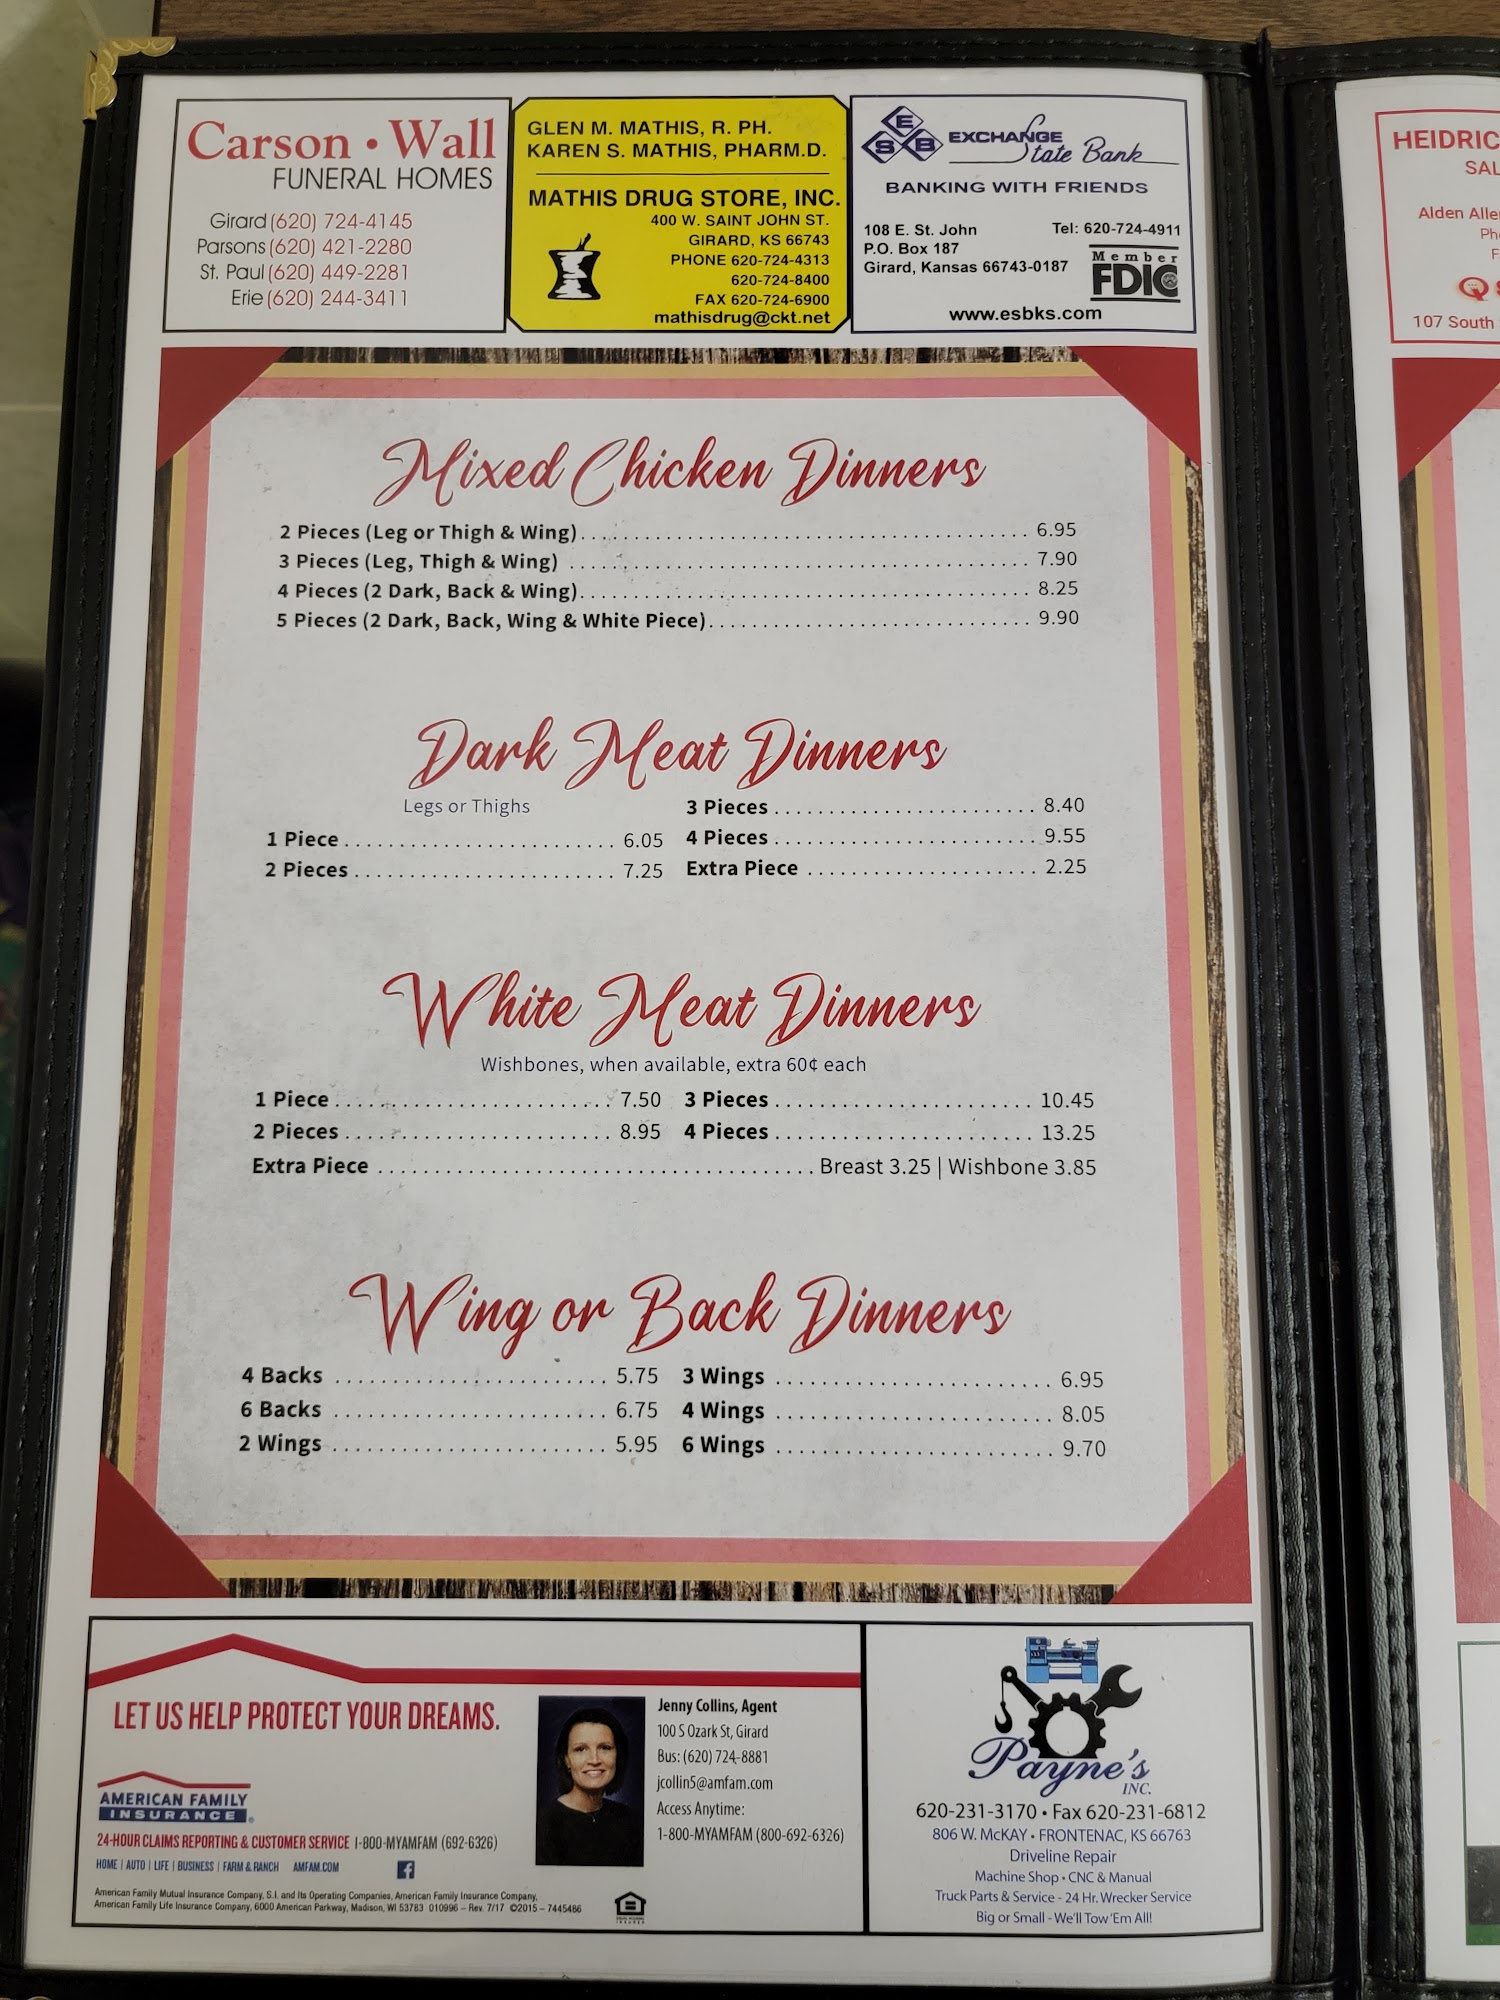 Carson • Wall
FUNERAL HOMES
Girard (620) 724-4145
Parsons (620) 421-2280
St. Paul (620) 449-2281
Erie (620) 244-3411
GLEN M. MATHIS, R. PH.
KAREN S. MATHIS, PHARM.D.
MATHIS DRUG STORE, INC.
400 W. SAINT JOHN ST.
GIRARD, KS 66743
PHONE 620-724-4313
620-724-8400
FAX 620-724-6900
mathisdrug@ckt.net
E
S B
EXCHANGE
State Bank
BANKING WITH FRIENDS
108 E. St. John Tel: 620-724-4911
P.O. Box 187
Girard, Kansas 66743-0187
Member
FDIC
www.esbks.com
Mixed Chicken Dinners
2 Pieces (Leg or Thigh & Wing) 6.95
3 Pieces (Leg, Thigh & Wing) 7.90
4 Pieces (2 Dark, Back & Wing) 8.25
5 Pieces (2 Dark, Back, Wing & White Piece) 9.90
Dark Meat Dinners
Legs or Thighs
1 Piece 6.05
2 Pieces 7.25
3 Pieces 8.40
4 Pieces 9.55
Extra Piece 2.25
White Meat Dinners
Wishbones, when available, extra 60¢ each
1 Piece 7.50 3 Pieces 10.45
2 Pieces 8.95 4 Pieces 13.25
Extra Piece Breast 3.25 | Wishbone 3.85
Wing or Back Dinners
4 Backs 5.75 3 Wings 6.95
6 Backs 6.75 4 Wings 8.05
2 Wings 5.95 6 Wings 9.70
LET US HELP PROTECT YOUR DREAMS.
AMERICAN FAMILY
INSURANCE
24-HOUR CLAIMS REPORTING & CUSTOMER SERVICE 1-800-MYAMFAM (692-6326)
HOME | AUTO | LIFE | BUSINESS | FARM & RANCH AMFAM.COM
American Family Mutual Insurance Company, S.I. and Its Operating Companies, American Family Insurance Company,
American Family Life Insurance Company, 6000 American Parkway, Madison, WI 53783 010996 – Rev. 7/17 ©2015 – 7445486
Jenny Collins, Agent
100 S Ozark St, Girard
Bus: (620) 724-8881
jcollin5@amfam.com
Access Anytime:
1-800-MYAMFAM (800-692-6326)
Payne's
INC.
620-231-3170 • Fax 620-231-6812
806 W. McKAY • FRONTENAC, KS 66763
Driveline Repair
Machine Shop • CNC & Manual
Truck Parts & Service - 24 Hr. Wrecker Service
Big or Small - We'll Tow 'Em All!
Alden
107 South